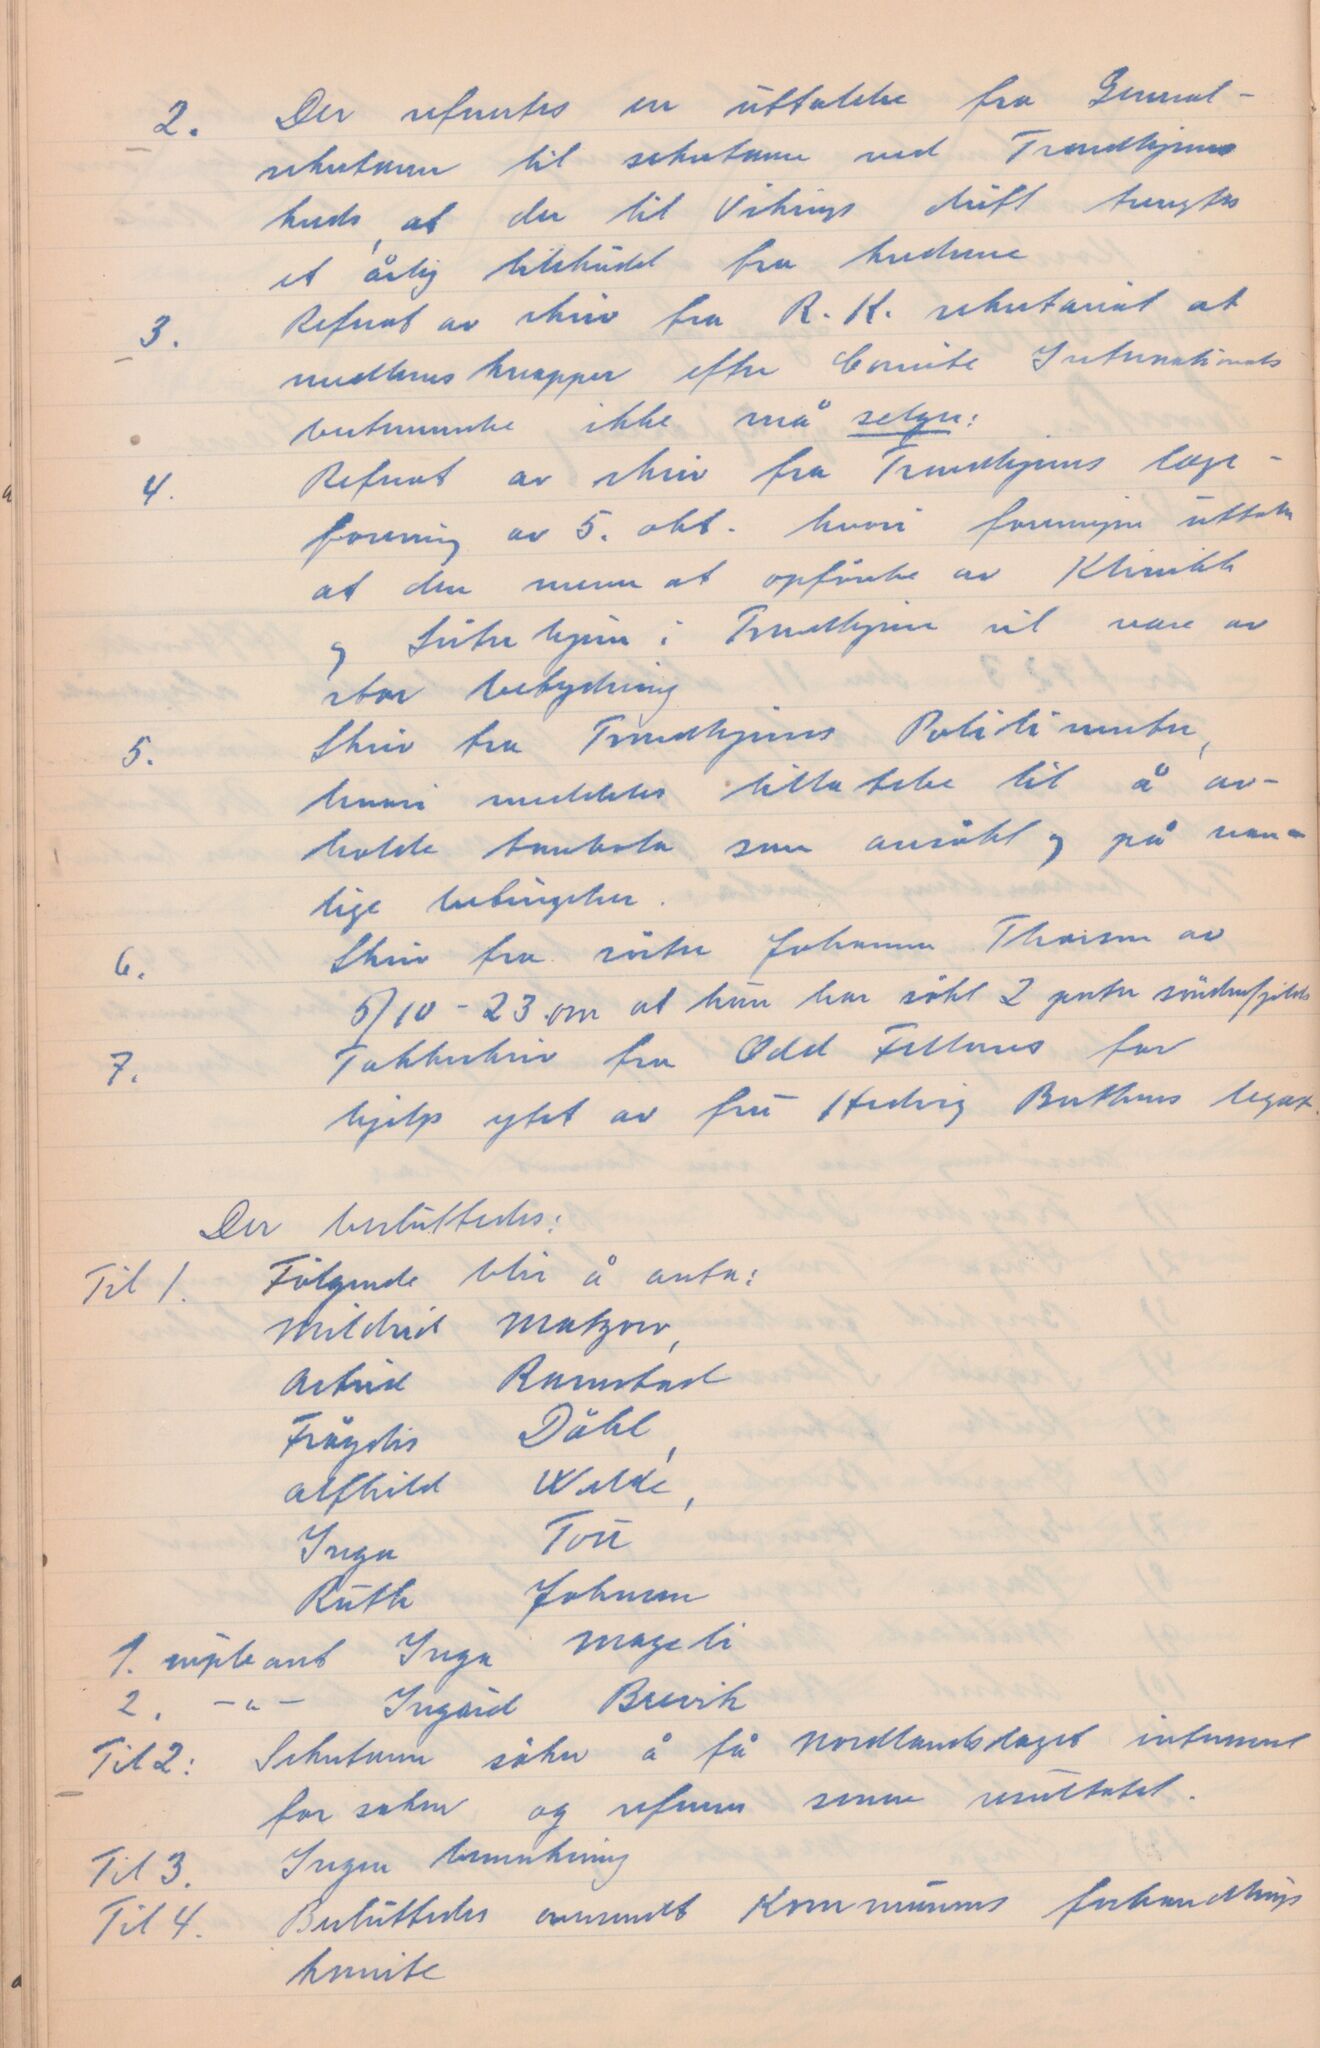 2. Der refertes en uttalelse fra General-
sekretæren til sekretæren ved Trondhjems
kreds, at der til Vikings drift trengtes
et årlig tilskudd fra kredsene
3. Referat av skriv fra R. K. sekretariat at
medlemsknapper efter Comite Internationals
bestemmelse ikke må selges:
4. Referat av skriv fra Trondhjems læge-
forening av 5. okt. hvori foreningen uttaler
at den mener at opførelse av Klinikk
og Søsterhjem i Trondhjem vil være av
stor betydning
5. Skriv fra Trondhjems Politimester,
hvori meddeles tillatelse til å av-
holde tombola som ansøkt og på van-
lige betingelser.
6. Skriv fra søster Johanna Thorsen av
5/10-23 om at hun har søkt 2 poster søndenfjelds
7. Takkeskriv fra Odd Fellows for
hjelp ytet av fru Hedvig Buthus legat.
Der besluttedes:
Til 1. Følgende blir å anta:
Mildrid Matzow,
Astrid Ramstad
Frøydis Dahl,
Alfhild Welde,
Inga Tori
Ruth Johnsen
1. supleant Inga Mageli
2. -"- Ingrid Brevik
Til 2: Sekretæren søker å få Nordlandslaget interessert
for saken og referere senere resultatet.
Til 3. Ingen bemerkning
Til 4. Besluttedes oversendt Kommunens forhandlings
komite